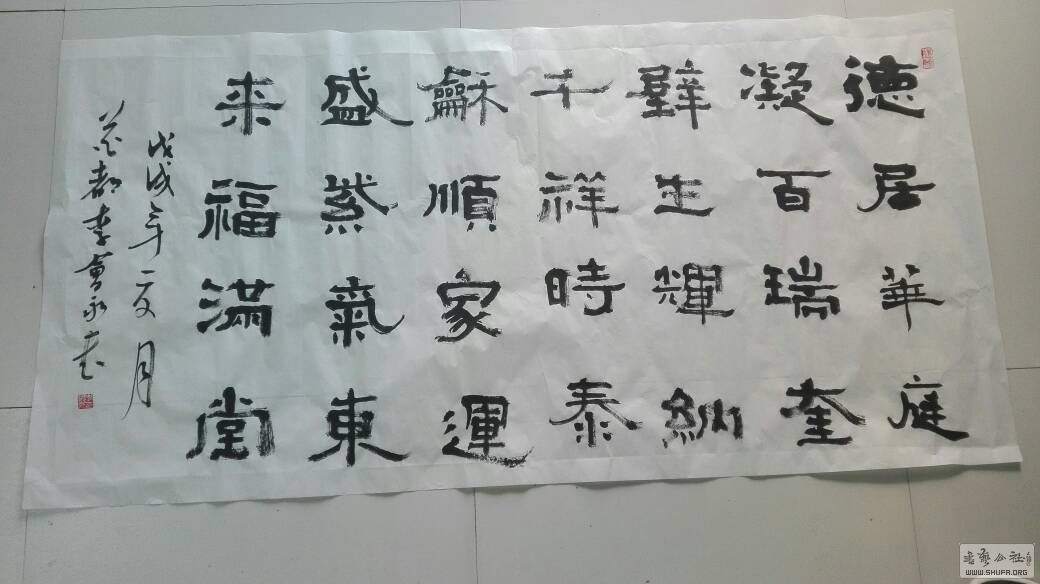 德居華庭
凝百瑞奎
壁生輝納
千祥時泰
龢順家運
盛紫氣東
来福滿堂
戊戌年夏月
花都李會永書
书艺公社
WWW.SHUFA.ORG